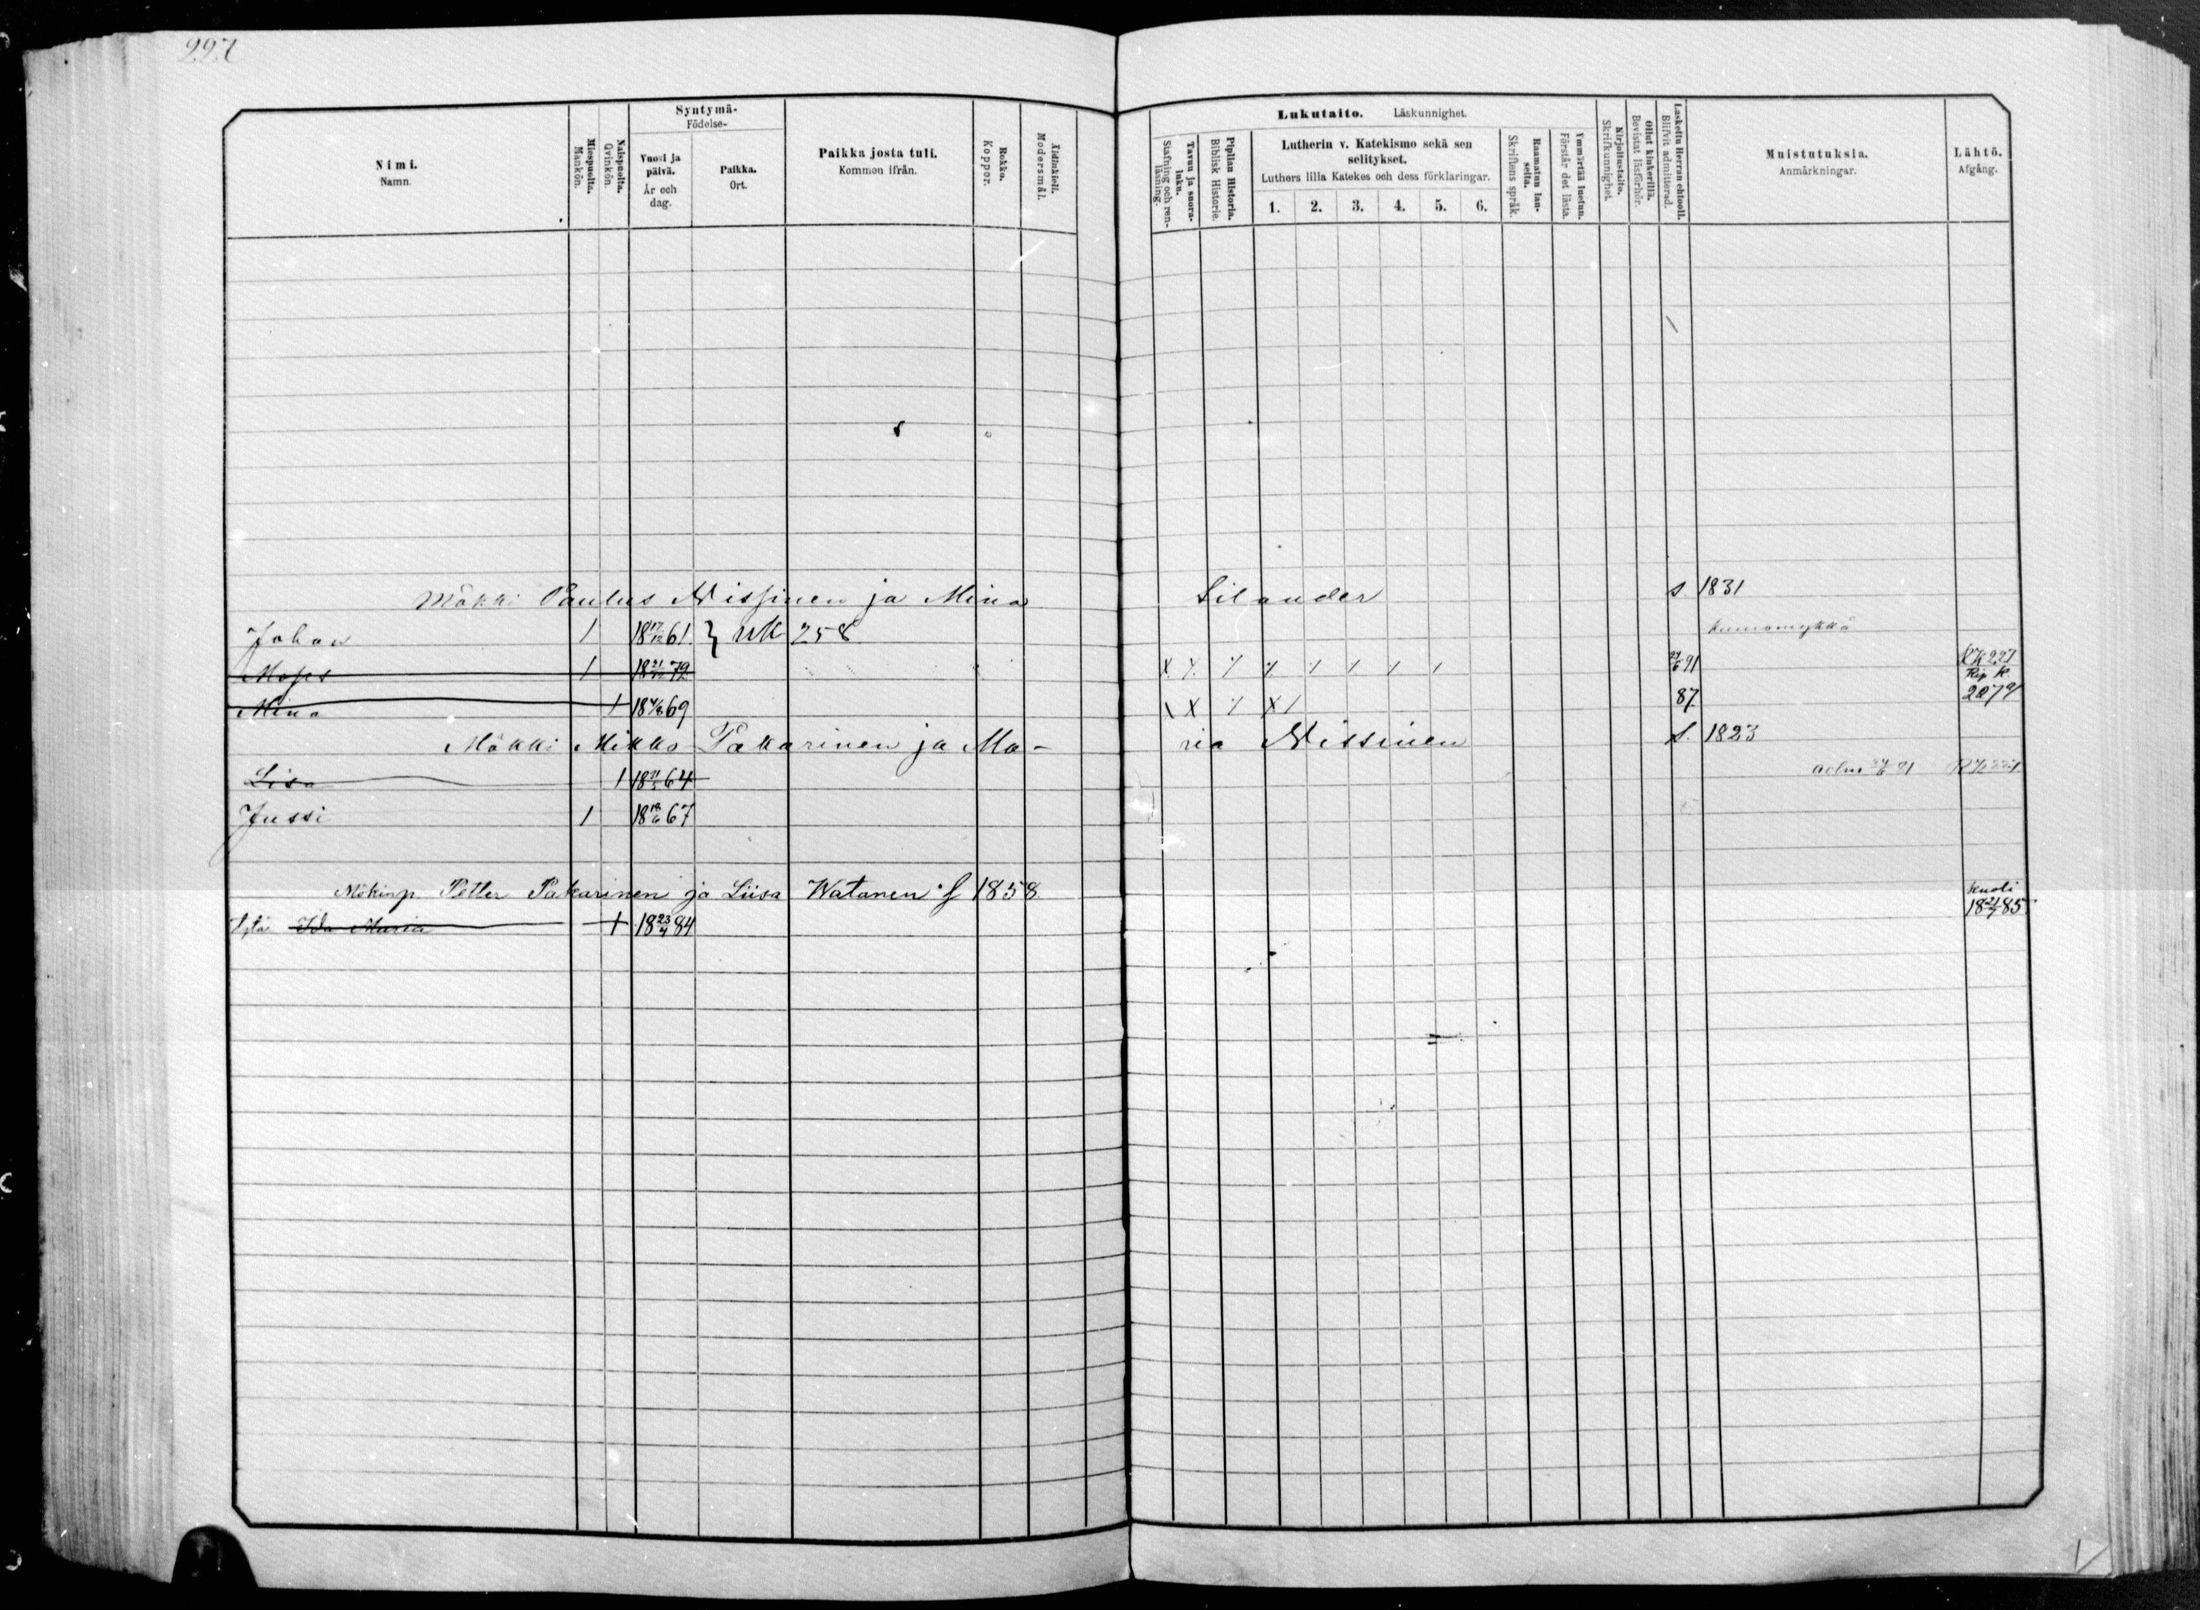 227
Syntymä-
Födelse-
Nimi.
Namn.
Miespuolta.
Mankön.
Naispuolta.
Qvinkön.
Vuosi ja päivä.
År och dag.
Paikka.
Ort.
Paikka josta tuli.
Kommen ifrån.
Rokko.
Koppor.
Äidinkieli.
Modersmål.
Lukutaito. Läskunnighet.
Tavuu ja suora-luku.
Stafning och ren-läsning.
Piplian Historia.
Biblisk Historie.
Lutherin v. Katekismo sekä sen selitykset.
Luthers lilla Katekes och dess förklaringar.
1. 2. 3. 4. 5. 6.
Raamatun lau-seita.
Skriftens språk.
Ymmärtää luetun.
Förstår det lästa.
Kirjoitustaito.
Skrifkunnighet.
Ollut kinkerillä.
Bevistat läsförhör.
Laskettu Herran ehtooll.
Blifvit admitterad.
Muistutuksia.
Anmärkningar.
Lähtö.
Afgång.
Mökki Paulus Nissinen ja Mina Silander s 1831
Johan 1 18 17/12 61 } RK 258 kuuromykkä
Moses 1 18 21/12 72 X / / / / / / / 24/6 91 RK 227
Rip K
Mina 1 18 4/8 69 \ X / X / 87. 2079
Mökki Mikko Pakarinen ja Ma- ria Nissinen S. 1823
Lisa 1 18 21/5 64 91
Jussi 1 18 18/6 67
Mökinp. Petter Pakarinen ja Liisa Watanen S 1858. kuoli
Ida Maria 1 18 23/4 84 18 21/7 85